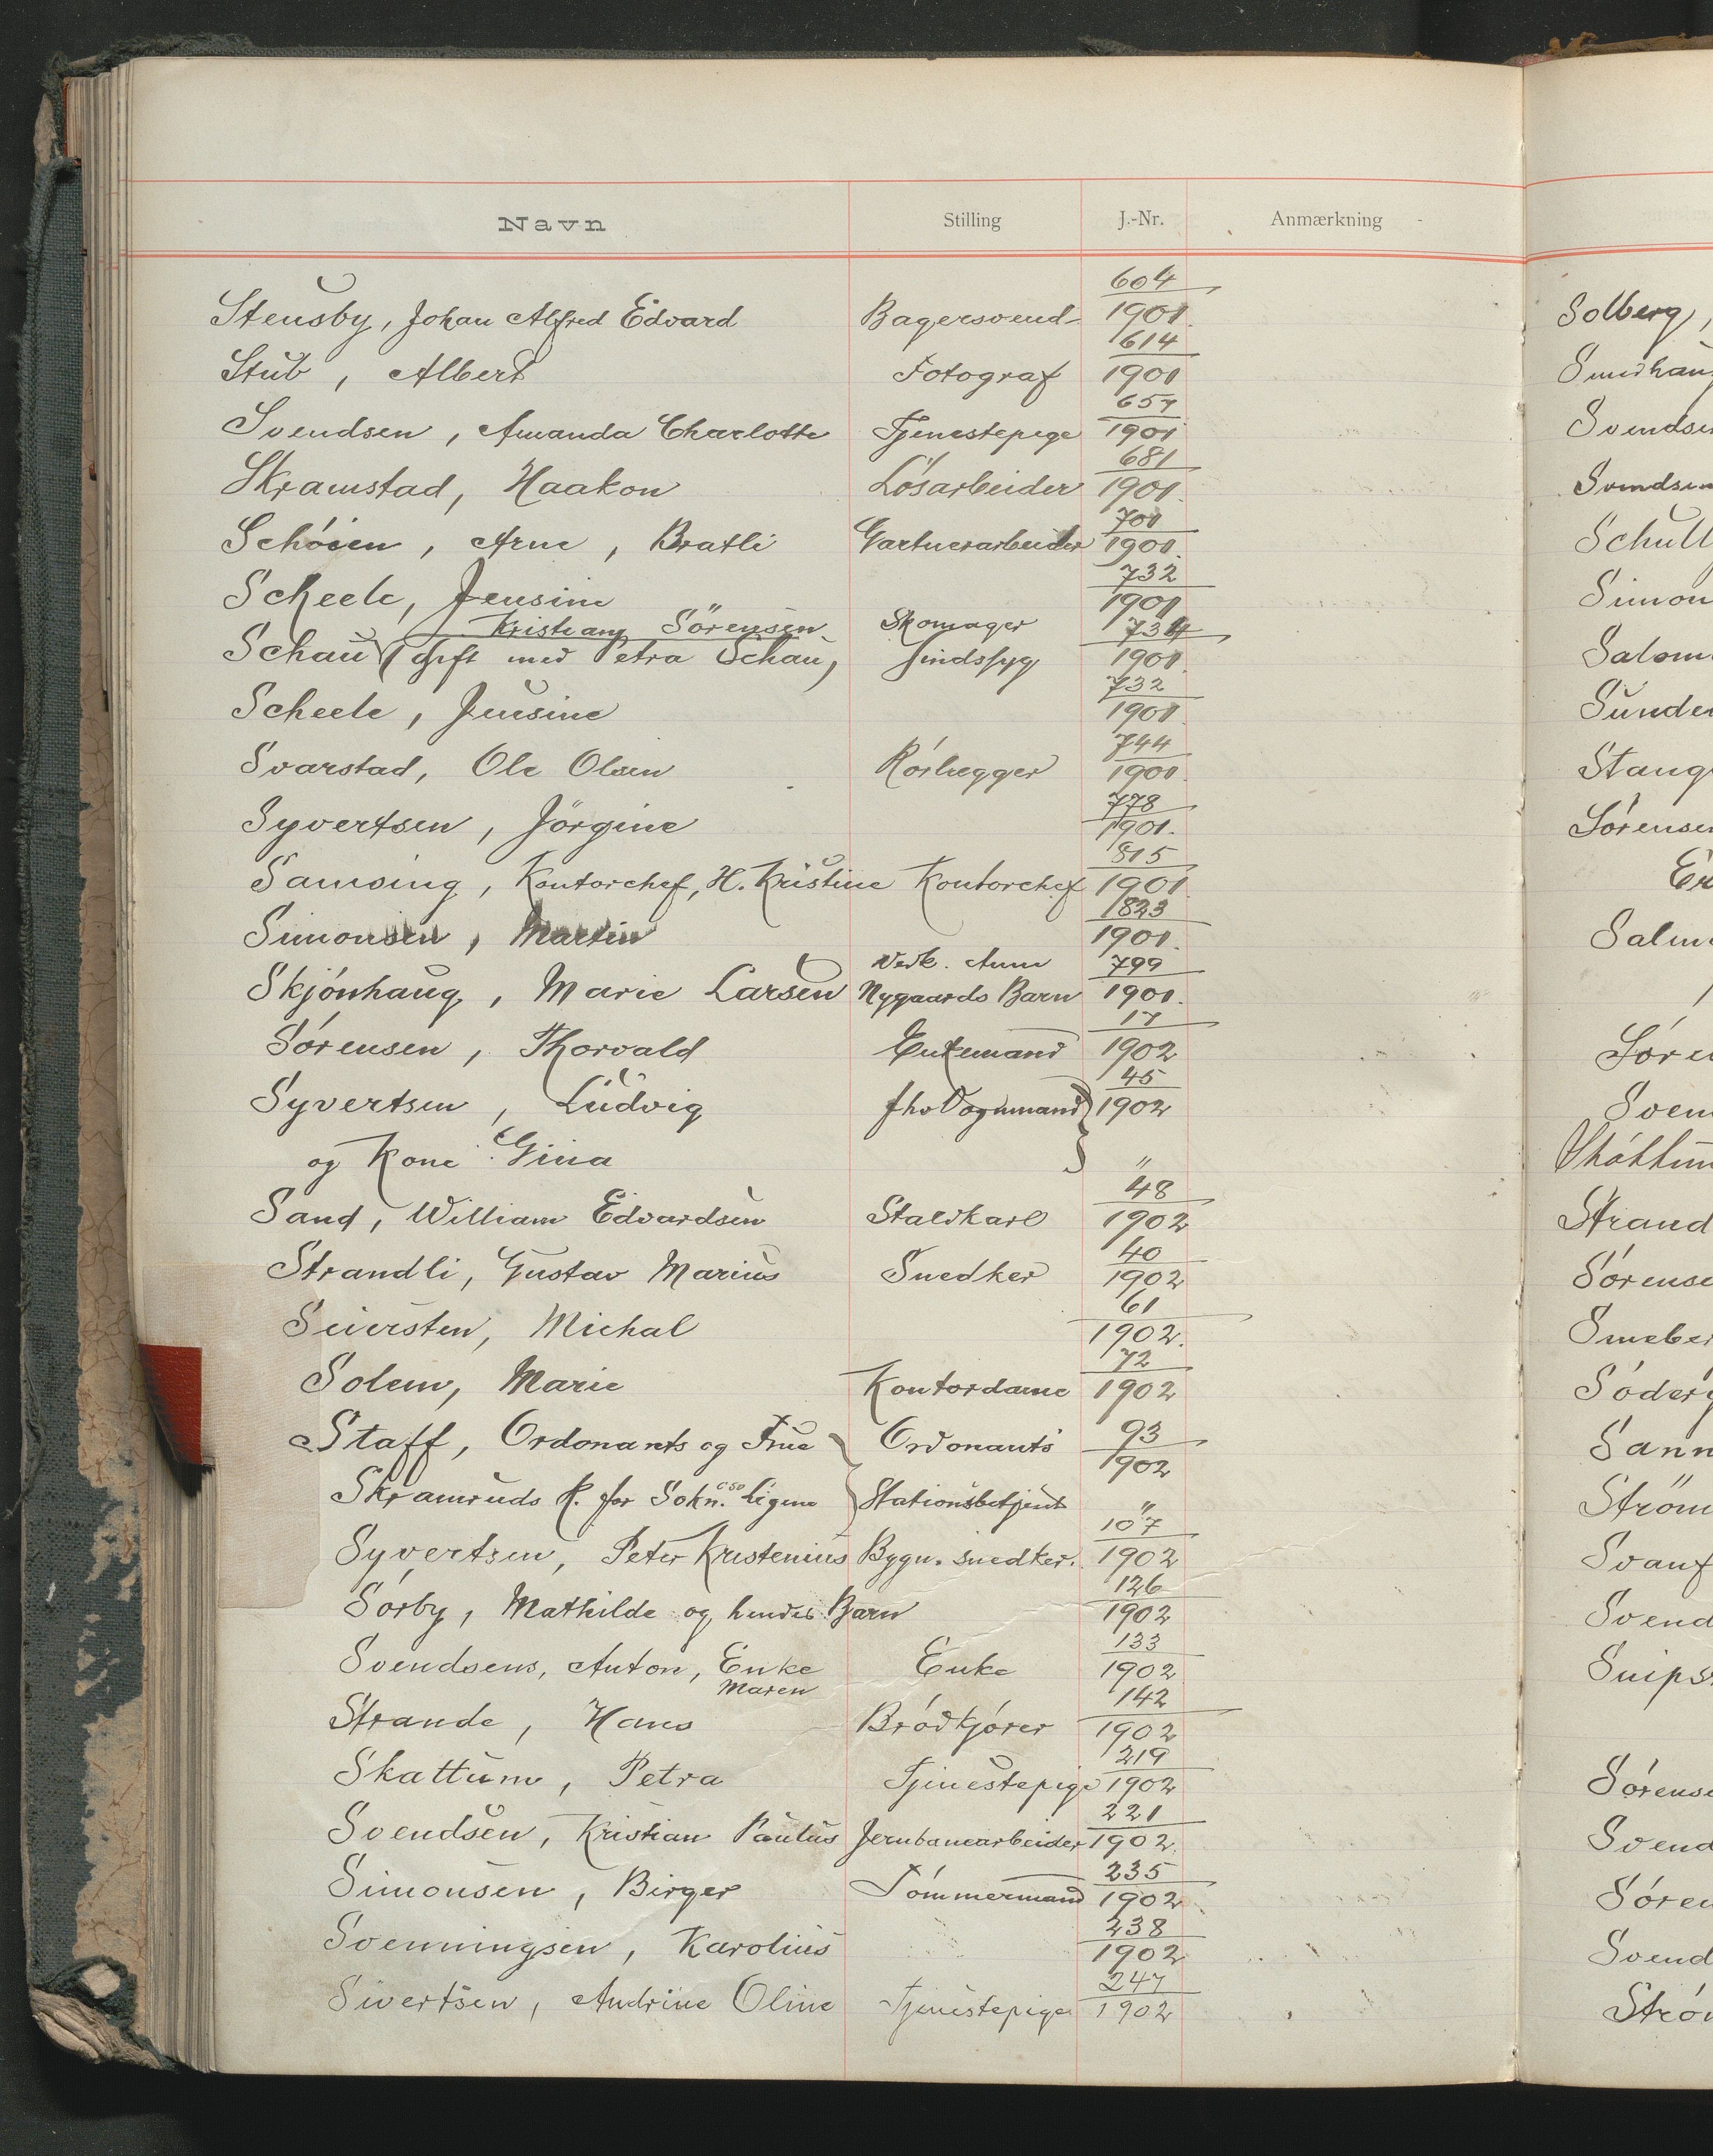 Navn Stilling J.-Nr. Anmærkning
Stensby, Johan Alfred Edvard Bagersvend 604/1901
Stub, Albert Fotograf 614/1901
Svendsen, Amanda Charlotte Tjenestepige 657/1901
Skramstad, Haakon Løsarbeider 681/1901.
Schóien, Arne, Bratli Gartnerarbeider 701/1901.
Scheele, Jensine 732/1901
Kristiany Sörensen Skomager
Schau (gift med Petra Schau, sindssyg 734/1901
Scheele, Jensine 732/1901
Svarstad, Ole Olsen Rörlægger 744/1901.
Syvertsen, Jörgine 778/1901.
Samsing, Kontorchef, H. Kristine Kontorchef 815/1901
Simonsen, Martin 1823/1901.
Skjónhaug, Marie Larsen Nygaards Barn 799/1901.
Sórensen, Thorvald Enkemand 17/1902
Syvertsen, Ludvig fhv Vognmand 45/1902
og Kone Gina "
Sand, William Edvardsen Staldkarl 48/1902
Strandli, Gustav Marius Snedker 40/1902
Seiersten, Michal 61/1902.
Solem, Marie Kontordame 72/1902
Staff, Ordonants og Frue Ordonants 93/1902
Skramruds K. for Stationsbetjent "
Syvertsen, Peter Kristenius Bygn. snedker. 107/1902
Sórby, Mathilde og hendes Barn 126/1902
Svendsens, Anton, Enke Enke 133/1902
Maren
Strande, Hans Bródkjórer 142/1902
Skattum, Petra Tjenestepige 219/1902
Svendsen, Kristian Paulus Jernbanearbeider 221/1902.
Simonsen, Birger Tómmermand 235/1902
Svenningsen, Karolius 238/1902
Sivertsen, Andrine Oline Tjenestepige 247/1902
Solberg,
Svendsen
Svendsen
Simon
Sunde
Stang
Sörensen
Strand
Sórense
Sann
Ström
Svend
Sørense
Svend
Sóren
Svend